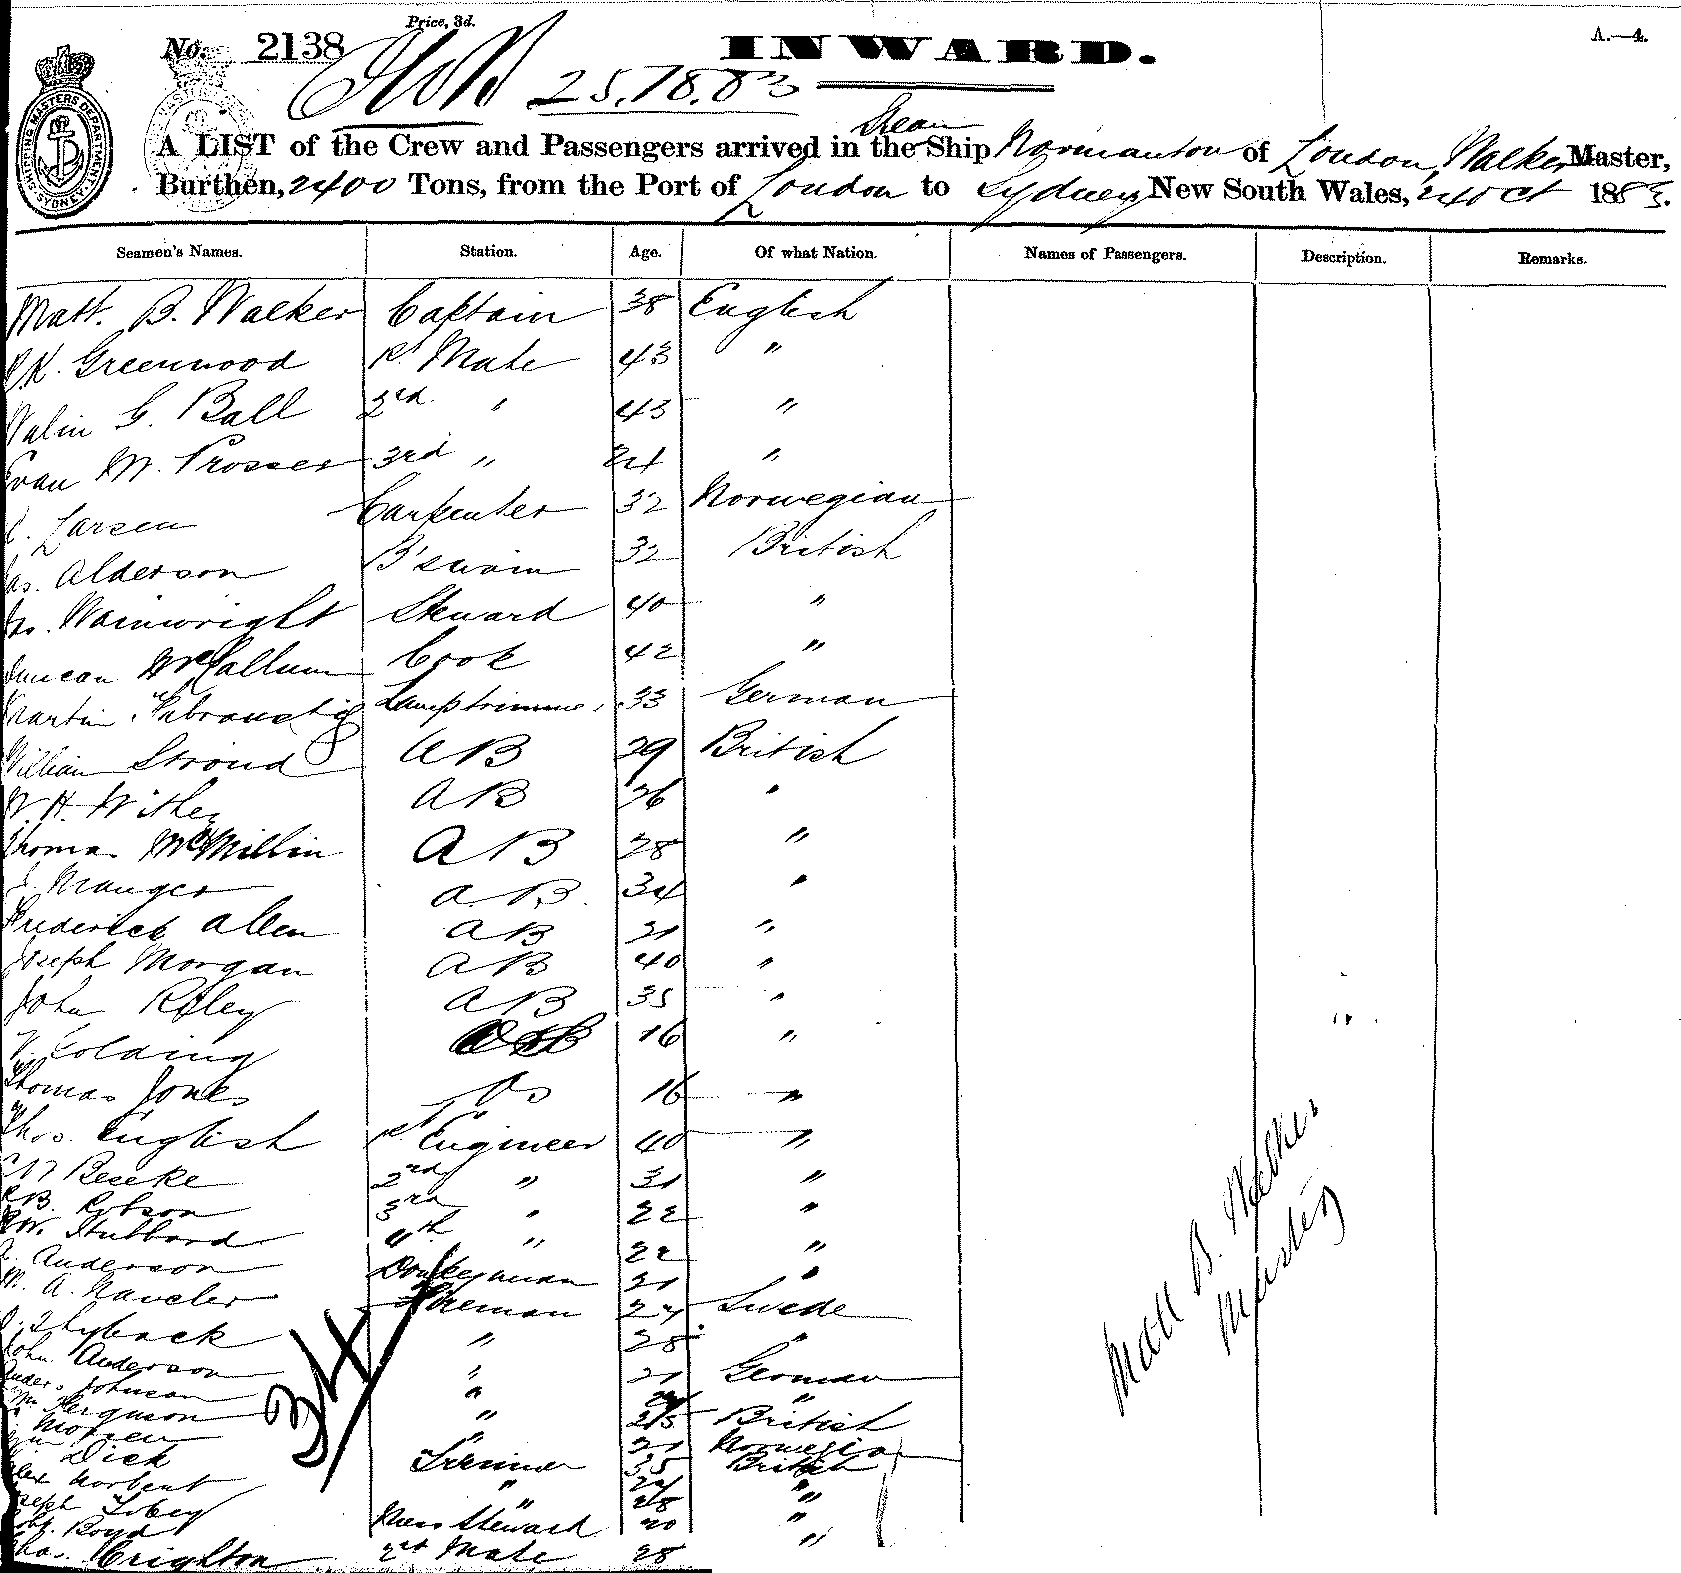 Price, 3d.
No. 2138 INWARD. A.—4.
25.18.83
Steam
A LIST of the Crew and Passengers arrived in the Ship Normanton of London, Walker Master,
Burthen, 2400 Tons, from the Port of London to Sydney New South Wales, 24 Oct 1883.
Seamen's Names. Station. Age. Of what Nation. Names of Passengers. Description. Remarks.
Matt. B. Walker Captain 38 English
Greenwood 1st Mate 43 "
G. Ball 2nd " 43 "
Evan M. Prosser 3rd " 24 "
Larsen Carpenter 32 Norwegian
Jas. Alderson B'swain 32 British
Wainwright Steward 40 "
Duncan McCallum Cook 42 "
Martin Lamptrimmer 33 German
William Stroud AB 29 British
W. H. Withey AB 26 "
Thomas McMillin AB 28 "
Mauger AB 34 "
Frederick Allen AB 21 "
Joseph Morgan AB 40 "
John Riley AB 35 "
Golding OS 16 "
Thomas Jones OS 16 "
Thos. English 1st Engineer 40 "
Beseke 2nd " 31 "
Robson 3rd " 22 "
Stubbard 4th " 22 "
Anderson Donkeyman 21 "
M. A. Fireman 27 Swede
" 28 "
John Anderson " 21 German
Johnson " "
Wm Ferguson " 25 British
" 21 Norwegian
Dick Trimmer 35 British
Alex Norbent " "
Joseph Tobey " 28 "
Robt. Boyd Mess Steward 20 "
Chas. Crighton 2nd Mate 28 "
34
Matt B. Walker
Master
SHIPPING MASTERS DEPARTMENT
SYDNEY